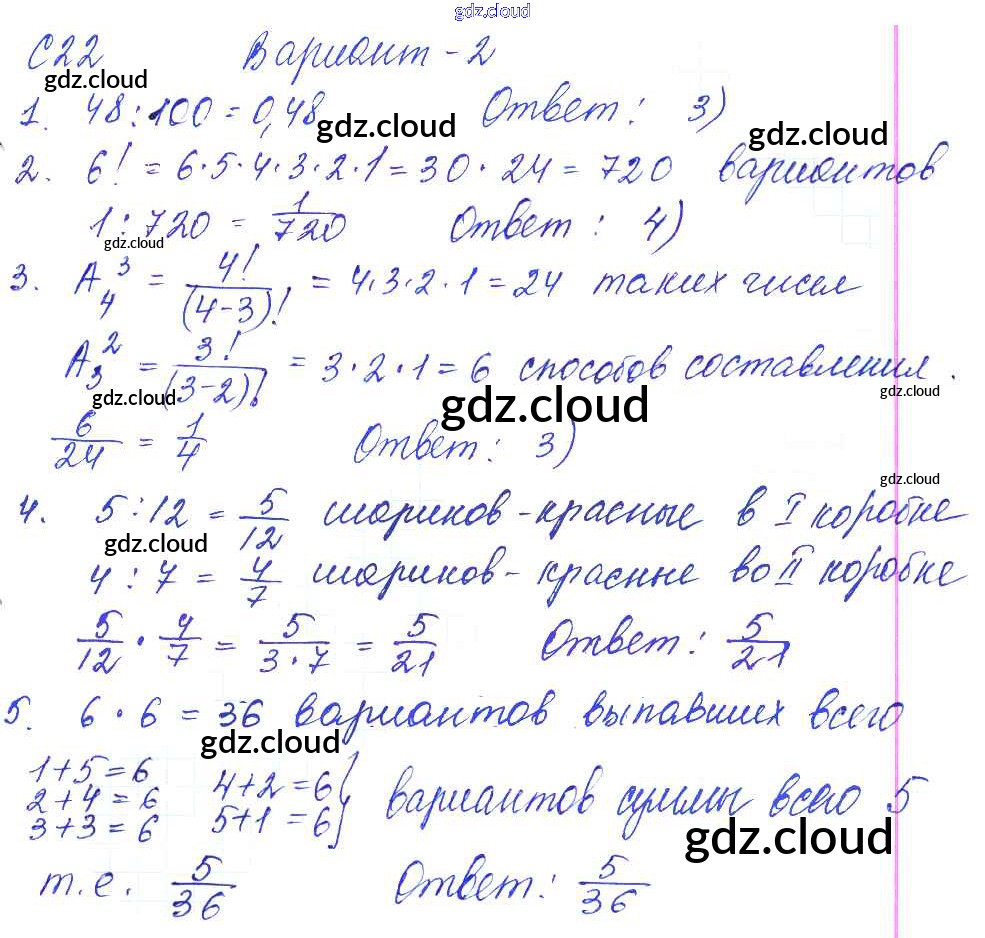 gdz.cloud
С22 Вариант-2
gdz.cloud
1. 48:100=0,48 Ответ: 3)
gdz.cloud gdz.cloud
2. 6! = 6·5·4·3·2·1=30·24=720 вариантов
1:720 = 1/720 Ответ: 4)
gdz.cloud
3. A₄³ = 4!/(4-3)! = 4·3·2·1=24 таких чисел
A₃² = 3!/(3-2)! = 3·2·1=6 способов составления.
gdz.cloud gdz.cloud gdz.cloud
6/24 = 1/4 Ответ: 3)
gdz.cloud
4. 5:12 = 5/12 шариков-красные в I коробке
gdz.cloud
4:7 = 4/7 шариков-красные во II коробке
5/12 · 4/7 = 5/3·7 = 5/21 Ответ: 5/21
5. 6·6=36 вариантов выпавших всего
gdz.cloud
1+5=6 4+2=6
2+4=6 5+1=6 } вариантов суммы всего 5
3+3=6
gdz.cloud
т.е. 5/36 Ответ: 5/36